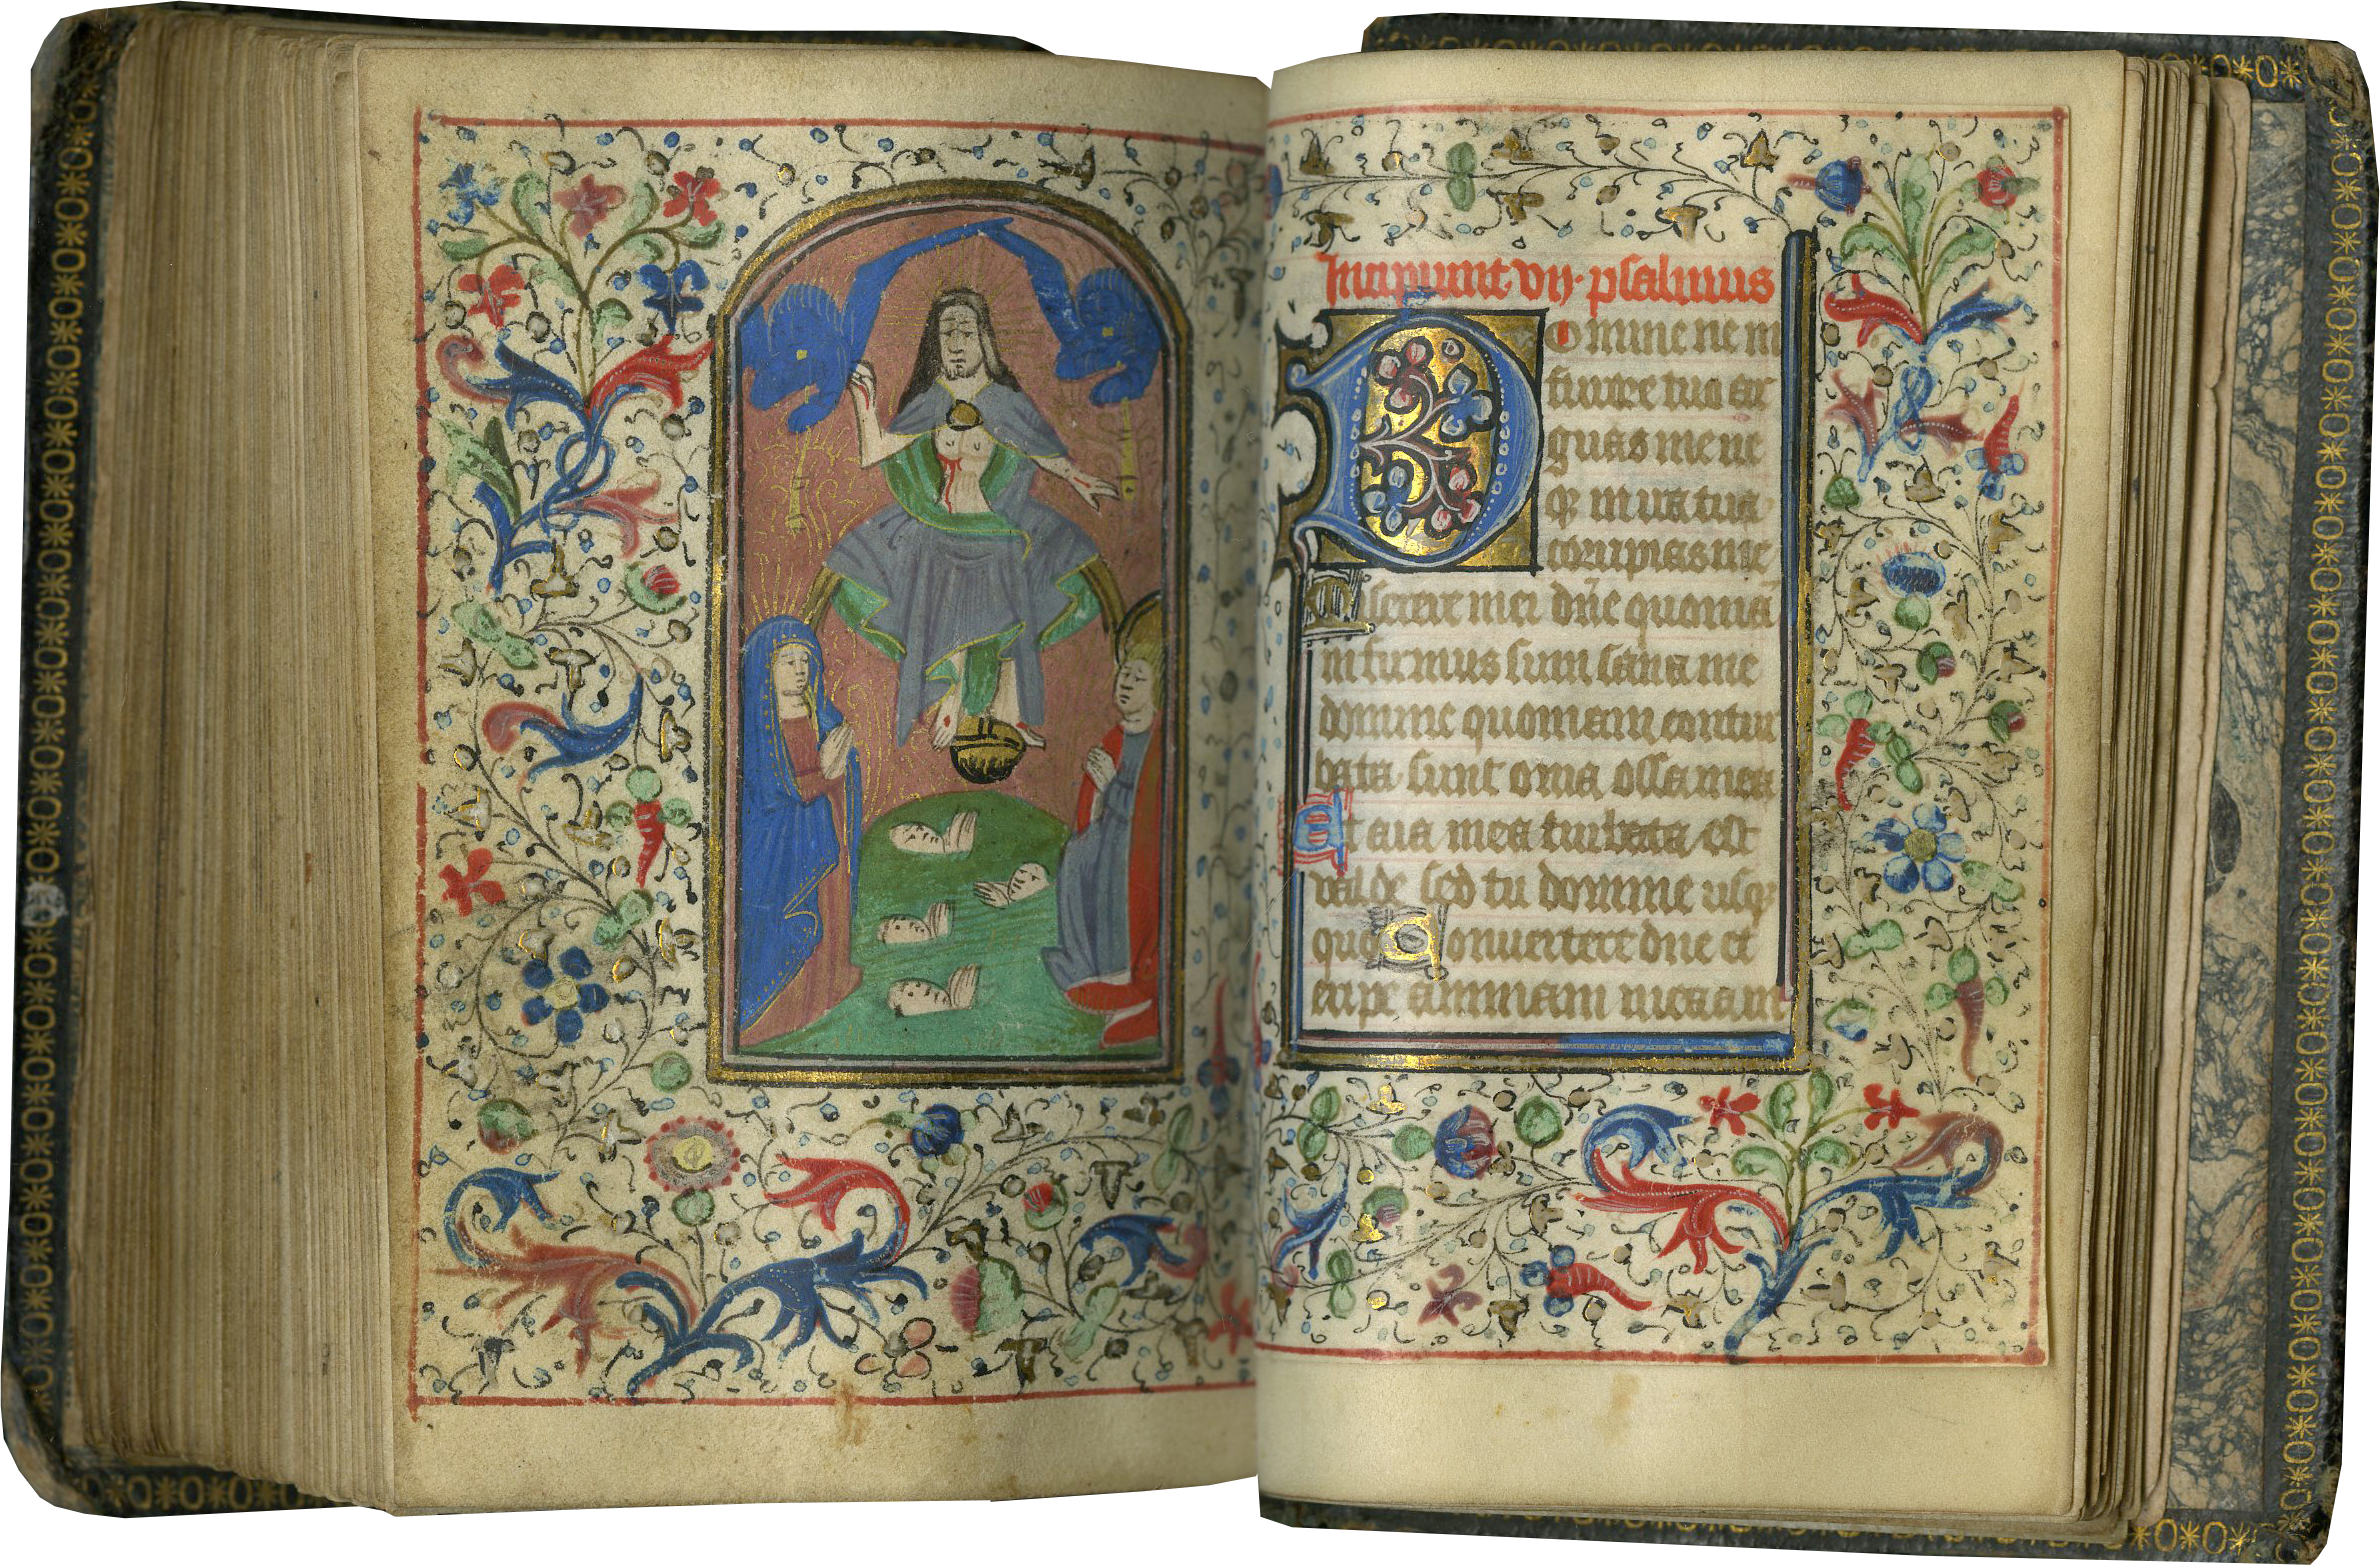 Incipiunt vij. psalmus
Domine ne in
furore tuo ar
guas me ne
q; in ira tua
corripias me
Miserere mei dñe quoniā
infirmus sum sana me
domine quoniam contur
bata sunt oma ossa mea
Et aīa mea turbata est
valde sed tu domine usq;
quo Conuertere dne et
eripe animam meaam